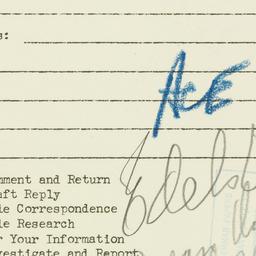 s:
ACE
mment and Return
aft Reply
Edels
le Correspondence
le Research
r Your Information
vestigate and Report